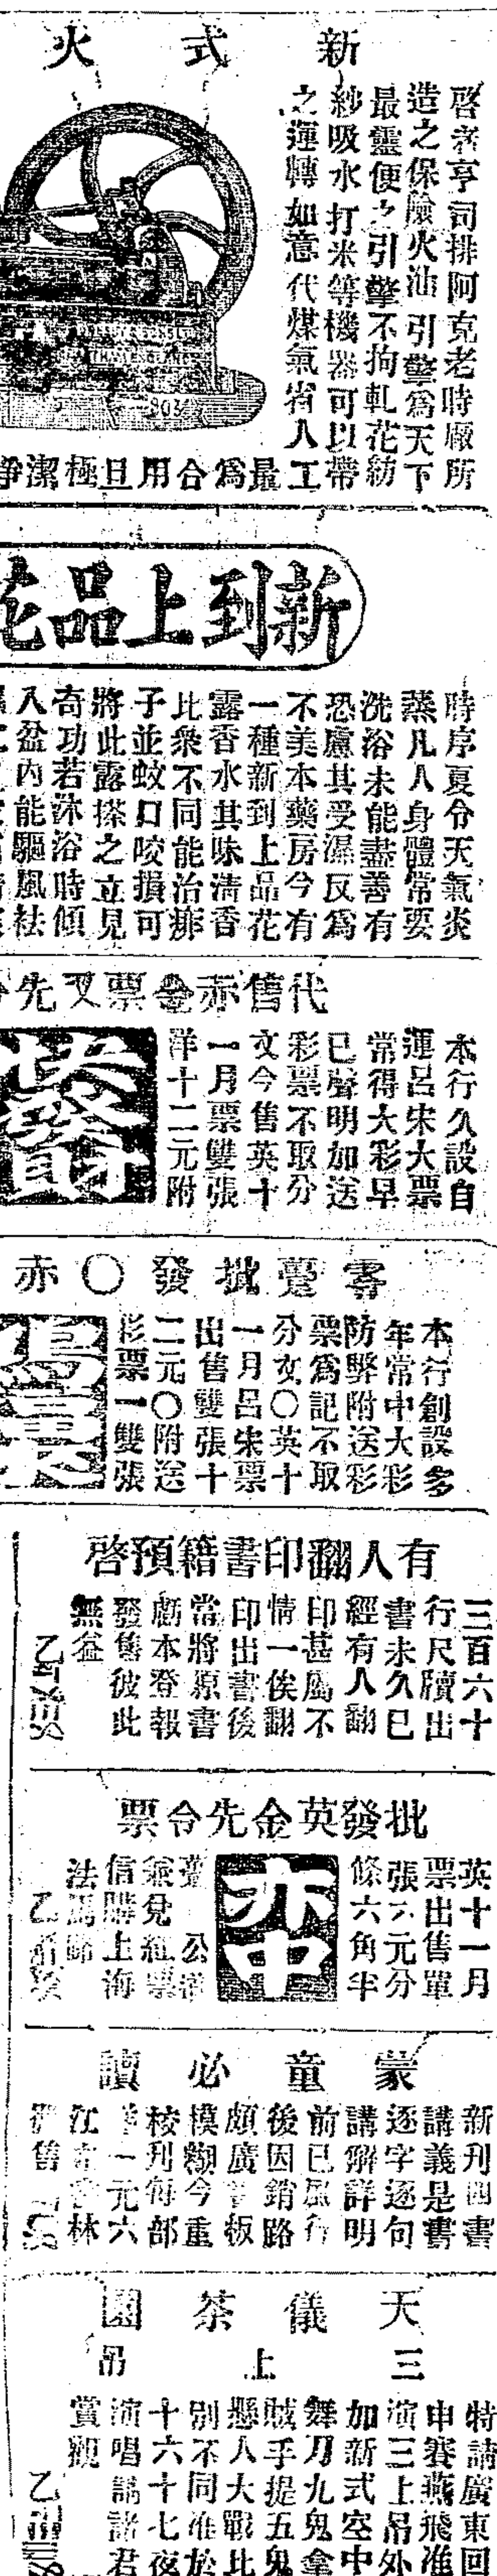 新式火
啓者亨司排阿克老時廠所
造之保險火油引擎為天下
最靈便之引擎不拘軋花紡
紗吸水打米等機器可以帶
之運轉如意代煤氣省人工
最爲合用且極潔淨
新到上品花
時序夏令天氣炎
蒸凡人身體常要
洗浴未能盡善有
恐慮其受濕反爲
不美本藥房今有
一種新到上品花
露香水其味清香
比衆不同能治痱
子並蚊口咬損可
將此露搽之立見
奇功若沐浴時傾
入盆內能驅風祛
代售赤金票又先
本行久設自
運呂宋大票
常得大彩早
已聲明加送
彩票不取分
文今售英十
一月票雙張
洋十二元附
零躉批發○赤
本行創設多
年常中大彩
防弊附送彩
票爲記不取
分文○英十
一月呂宋票
出售雙張十
二元○附送
彩票一雙張
有人翻印書籍預啓
三百六十
行尺牘出
書未久已
經有人翻
印甚屬不
情一俟翻
印出書後
常將原書
虧本登報
發售彼此
無益
批發英金先令票
英十一月
票出售單
張六元分
條六角半
亦中
躉 公道
兼兌紅票
信購上海
蒙童必讀
新刊四書
講義是書
逐字逐句
講解詳明
前已風行
後因銷路
頗廣 板
模糊今重
校刊每部
一元六
天儀茶園
三上吊
特請廣東回
申賽燕飛准
演三上吊外
加新式空中
舞刀九鬼拿
賊手提五鬼
懸人大戰比
別不同准於
十六十七夜
演唱請諸君
賞觀